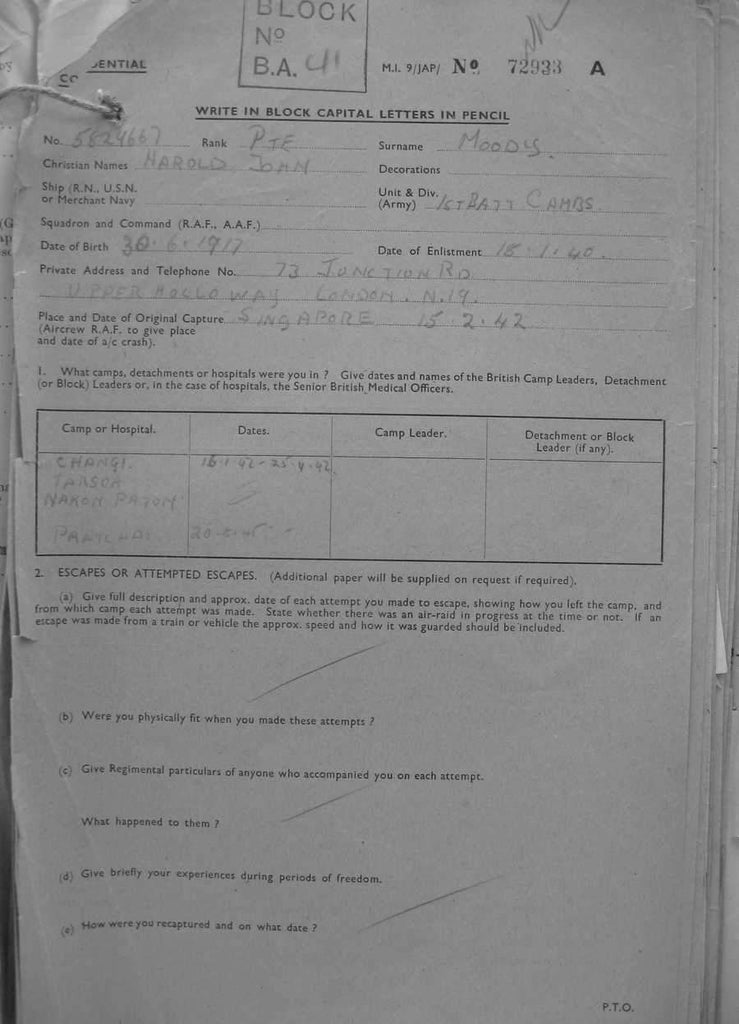 BLOCK
Nº
B.A. 41
M.I. 9/JAP/ Nº 72933 A
WRITE IN BLOCK CAPITAL LETTERS IN PENCIL
No. 5824667 Rank PTE Surname MOODY.
Christian Names HAROLD JOHN Decorations
Ship (R.N., U.S.N. or Merchant Navy
Unit & Div. (Army) 1ST BATT CAMBS.
Squadron and Command (R.A.F., A.A.F.)
Date of Birth 30.6.1917 Date of Enlistment 18.1.40.
Private Address and Telephone No. 73 JUNCTION RD
UPPER HOLLOWAY LONDON. N.19.
Place and Date of Original Capture SINGAPORE 15.2.42
(Aircrew R.A.F. to give place
and date of a/c crash).
1. What camps, detachments or hospitals were you in ? Give dates and names of the British Camp Leaders, Detachment
(or Block) Leaders or, in the case of hospitals, the Senior British Medical Officers.
Camp or Hospital. Dates. Camp Leader. Detachment or Block
Leader (if any).
CHANGI. 16.1.42-25.4.42
TARSOA
NAKON PATON
20-
2. ESCAPES OR ATTEMPTED ESCAPES. (Additional paper will be supplied on request if required).
(a) Give full description and approx. date of each attempt you made to escape, showing how you left the camp, and
from which camp each attempt was made. State whether there was an air-raid in progress at the time or not. If an
escape was made from a train or vehicle the approx. speed and how it was guarded should be included.
(b) Were you physically fit when you made these attempts ?
(c) Give Regimental particulars of anyone who accompanied you on each attempt.
What happened to them ?
(d) Give briefly your experiences during periods of freedom.
(e) How were you recaptured and on what date ?
P.T.O.